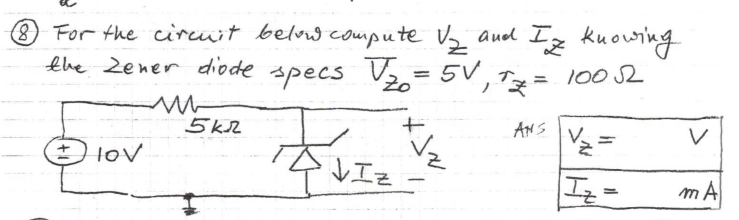 ⑧ For the circuit below compute V_Z and I_Z knowing
the Zener diode specs V_Z0 = 5V, r_Z = 100 Ω
5kΩ
+
-
10V
+
V_Z
-
↓ I_Z
ANS
V_Z = V
I_Z = mA